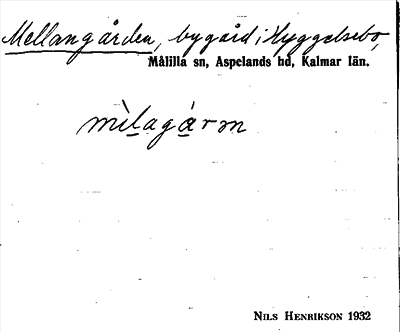 Mellangården, bygård i Hyggelsebo,
Målilla sn, Aspelands hd, Kalmar län.
mìlagárn
NILS HENRIKSON 1932